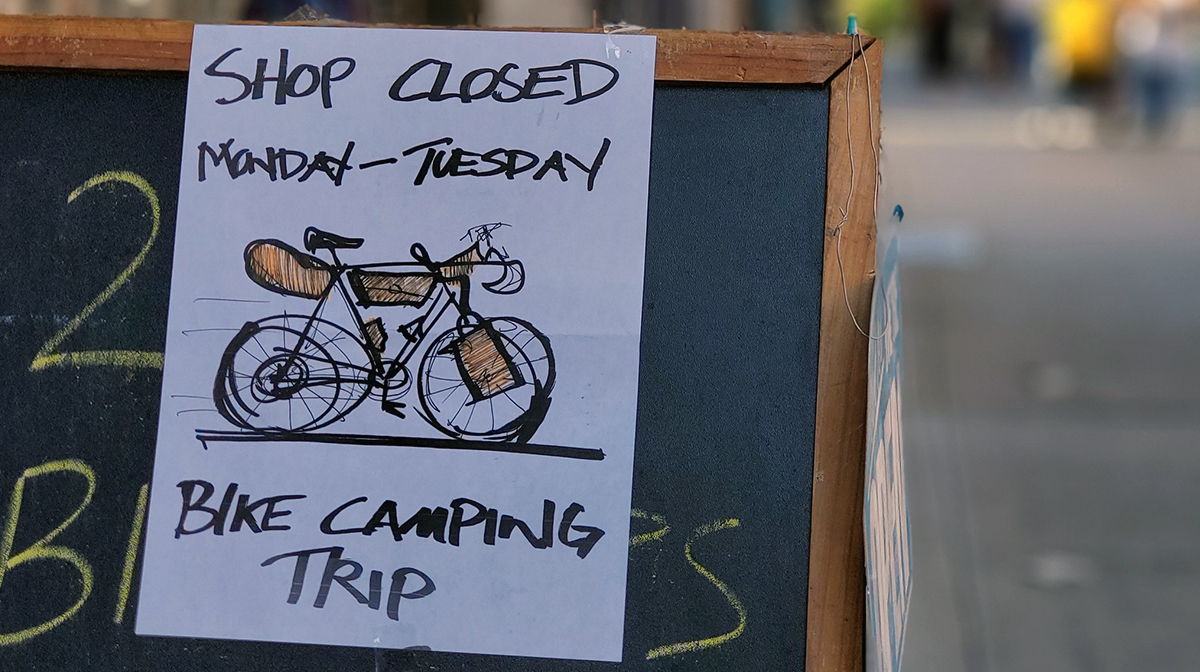 SHOP CLOSED
MONDAY – TUESDAY
BIKE CAMPING
TRIP
2